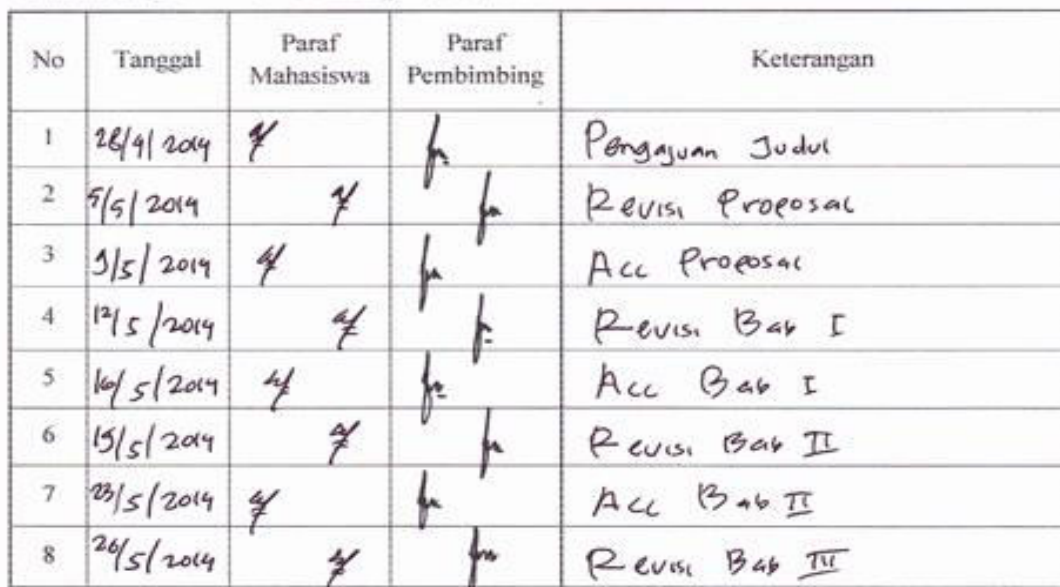 No Tanggal Paraf Mahasiswa Paraf Pembimbing Keterangan
1 28/4/2014 Pengajuan Judul
2 5/5/2014 Revisi Proposal
3 9/5/2014 Acc Proposal
4 12/5/2014 Revisi Bab I
5 16/5/2014 Acc Bab I
6 19/5/2014 Revisi Bab II
7 23/5/2014 Acc Bab II
8 26/5/2014 Revisi Bab III